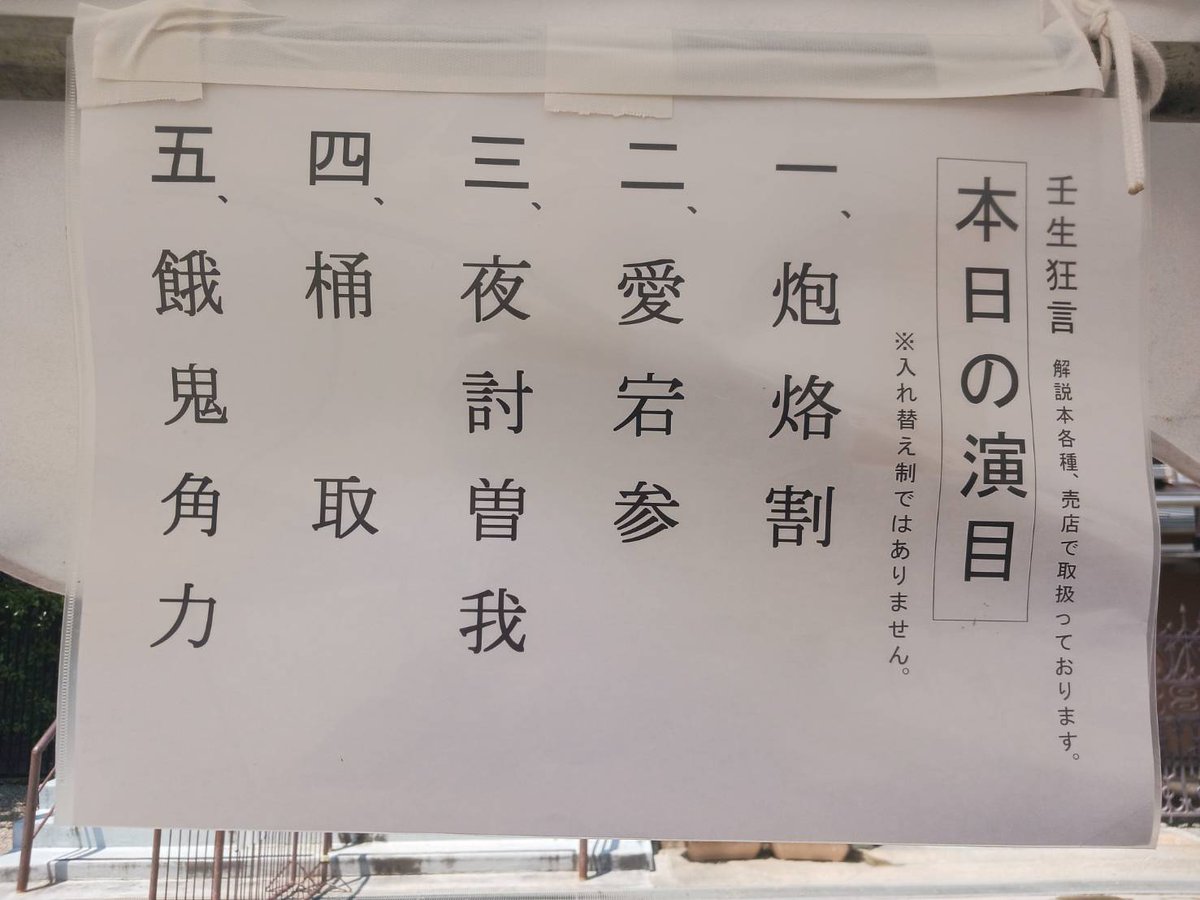 壬生狂言 解説本各種、売店で取扱っております。
本日の演目
※入れ替え制ではありません。
一、炮烙割
二、愛宕参
三、夜討曽我
四、桶取
五、餓鬼角力